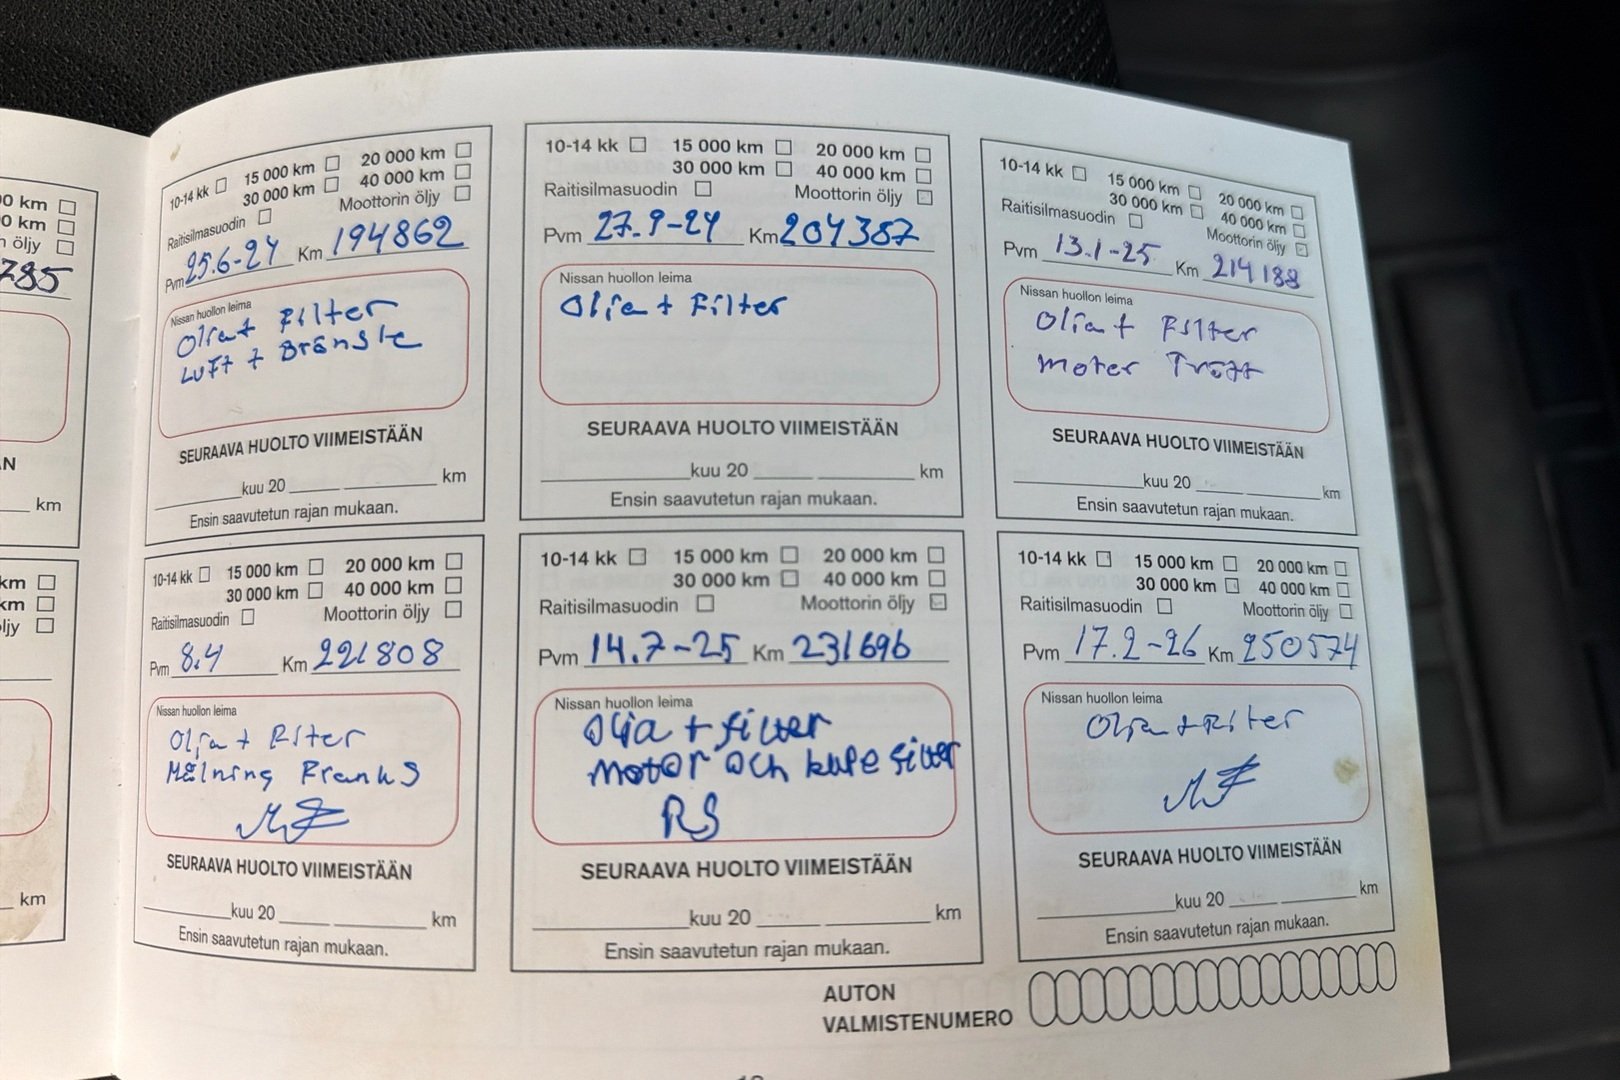 0 km
0 km
n öljy
785
N
km
km
km
ljy
km
10-14 kk 15 000 km 20 000 km
30 000 km 40 000 km
Raitisilmasuodin Moottorin öljy
Pvm 25.6-24 Km 194862
Nissan huollon leima
Olja + Filter
Luft + Bränsle
SEURAAVA HUOLTO VIIMEISTÄÄN
kuu 20 km
Ensin saavutetun rajan mukaan.
10-14 kk 15 000 km 20 000 km
30 000 km 40 000 km
Raitisilmasuodin Moottorin öljy
Pvm 27.9-24 Km 204387
Nissan huollon leima
Olja + Filter
SEURAAVA HUOLTO VIIMEISTÄÄN
kuu 20 km
Ensin saavutetun rajan mukaan.
10-14 kk 15 000 km 20 000 km
30 000 km 40 000 km
Raitisilmasuodin Moottorin öljy
Pvm 13.1-25 Km 214188
Nissan huollon leima
Olja + Filter
Moter
SEURAAVA HUOLTO VIIMEISTÄÄN
kuu 20 km
Ensin saavutetun rajan mukaan.
10-14 kk 15 000 km 20 000 km
30 000 km 40 000 km
Raitisilmasuodin Moottorin öljy
Pvm 8.4 Km 221808
Nissan huollon leima
Olja + Filter
Mälning
SEURAAVA HUOLTO VIIMEISTÄÄN
kuu 20 km
Ensin saavutetun rajan mukaan.
10-14 kk 15 000 km 20 000 km
30 000 km 40 000 km
Raitisilmasuodin Moottorin öljy
Pvm 14.7-25 Km 231696
Nissan huollon leima
Olja + filter
motor och kupe filter
RS
SEURAAVA HUOLTO VIIMEISTÄÄN
kuu 20 km
Ensin saavutetun rajan mukaan.
10-14 kk 15 000 km 20 000 km
30 000 km 40 000 km
Raitisilmasuodin Moottorin öljy
Pvm 17.2-26 Km 250574
Nissan huollon leima
Olja + Filter
SEURAAVA HUOLTO VIIMEISTÄÄN
kuu 20 km
Ensin saavutetun rajan mukaan.
AUTON
VALMISTENUMERO